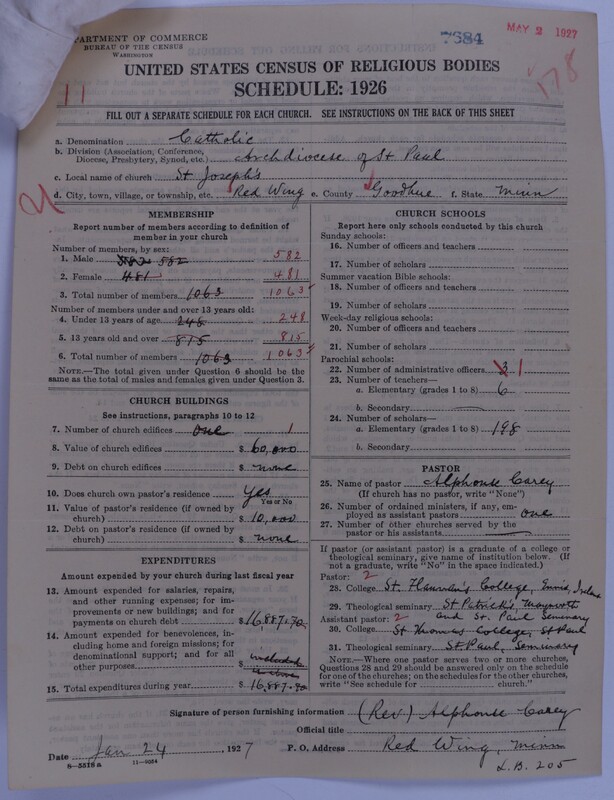 DEPARTMENT OF COMMERCE
BUREAU OF THE CENSUS
WASHINGTON
7684
MAY 2 1927
178
11
UNITED STATES CENSUS OF RELIGIOUS BODIES
SCHEDULE: 1926
FILL OUT A SEPARATE SCHEDULE FOR EACH CHURCH. SEE INSTRUCTIONS ON THE BACK OF THIS SHEET
a. Denomination Catholic
b. Division (Association, Conference, Diocese, Presbytery, Synod, etc.) Archdiocese of St Paul
c. Local name of church St Joseph's
d. City, town, village, or township, etc. Red Wing e. County Goodhue f. State Minn
MEMBERSHIP
Report number of members according to definition of
member in your church
Number of members, by sex:
1. Male 582 582
2. Female 481 481
3. Total number of members 1063 1063
Number of members under and over 13 years old:
4. Under 13 years of age 248 248
5. 13 years old and over 815 815
6. Total number of members 1063 1063
NOTE.—The total given under Question 6 should be
the same as the total of males and females given under Question 3.
CHURCH BUILDINGS
See instructions, paragraphs 10 to 12
7. Number of church edifices one 1
8. Value of church edifices $ 60,000
9. Debt on church edifices $ none
10. Does church own pastor's residence Yes
Yes or No
11. Value of pastor's residence (if owned by
church) $ 10,000
12. Debt on pastor's residence (if owned by
church) $ none
EXPENDITURES
Amount expended by your church during last fiscal year
13. Amount expended for salaries, repairs,
and other running expense; for im-
provements or new buildings; and for
payments on church debt $ 16,887.90
14. Amount expended for benevolences,
including home and foreign missions; for
denominational support; and for all
other purposes $ included
in above
15. Total expenditures during year $ 16,887.90
CHURCH SCHOOLS
Report here only schools conducted by this church
Sunday schools:
16. Number of officers and teachers
17. Number of scholars
Summer vacation Bible schools:
18. Number of officers and teachers
19. Number of scholars
Week-day religious schools:
20. Number of officers and teachers
21. Number of scholars
Parochial schools:
22. Number of administrative officers 3 1
23. Number of teachers—
a. Elementary (grades 1 to 8) 6
b. Secondary
24. Number of scholars—
a. Elementary (grades 1 to 8) 198
b. Secondary
PASTOR
25. Name of pastor Alphonse Carey
(If church has no pastor, write "None")
26. Number of ordained ministers, if any, em-
ployed as assistant pastors one
27. Number of other churches served by the
pastor or his assistants
If pastor (or assistant pastor) is a graduate of a college or
theological seminary, give name of institution below. (If
not a graduate, write "No" in the space indicated.)
Pastor: 2
28. College St. Flannan's College, Ennis, Ireland
29. Theological seminary St Patrick's Maynooth
Assistant pastor: 2 and St. Paul Seminary
30. College St Thomas College, St Paul
31. Theological seminary St. Paul, Seminary
NOTE.—Where one pastor serves two or more churches,
Questions 28 and 29 should be answered only on the schedule
for one of the churches; on the schedules for the other churches,
write "See schedule for church."
Signature of person furnishing information (Rev) Alphonse Carey
Official title
Date Jan 24, 1927 P. O. Address Red Wing, Minn
8—5518a 11—9084
L.B. 205